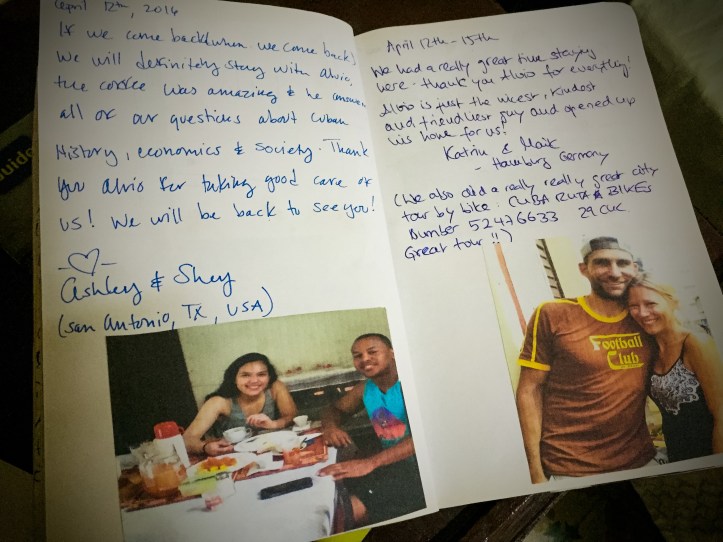 April 12th, 2016
If we come back (when we come back)
we will definitely stay with Alvio.
the coffee was amazing & he answer
all of our questions about Cuban
History, economics & society. Thank
you Alvio for taking good care of
us! We will be back to see you!
Ashley & Shey
(San Antonio, TX, USA)
April 12th - 15th
We had a really great time staying
here - thank you Alvio for everything!
Alvio is just the nicest, kindest
and friendliest guy and opened up
his home for us!
Katrin & Maik
- Hamburg Germany
(We also did a really really great city
tour by bike: CUBA RUTA & BIKES
Number 52476633 29 CUC
Great tour!!)
Football
Club
uide